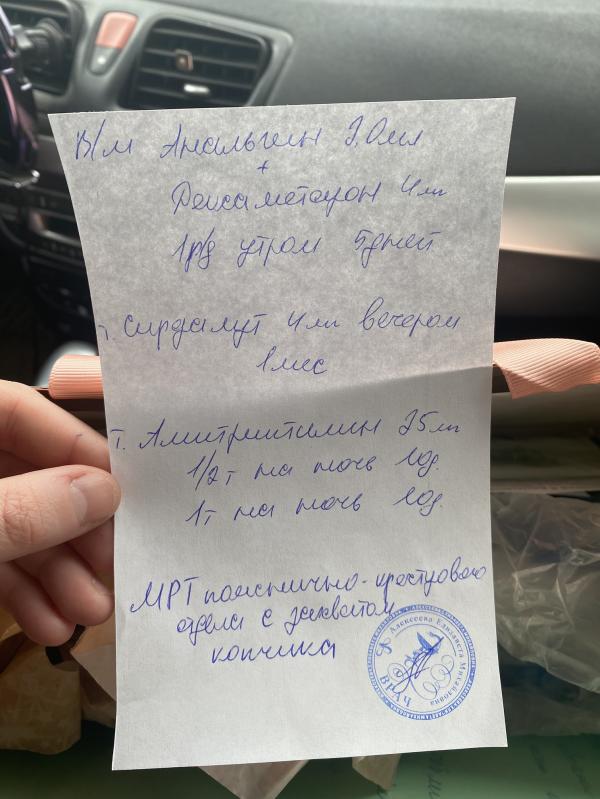 В/м Анальгин 2,0 мл
+
Дексаметазон 4 мг
1р/д утром 5 дней
т. Сирдалуд 4 мг вечером
1 мес
т. Амитриптилин 25 мг
1/2 т на ночь 10д.
1 т на ночь 10д.
МРТ пояснично-крестцового
отдела с захватом
копчика
Алексеева Елизавета Михайловна
ВРАЧ